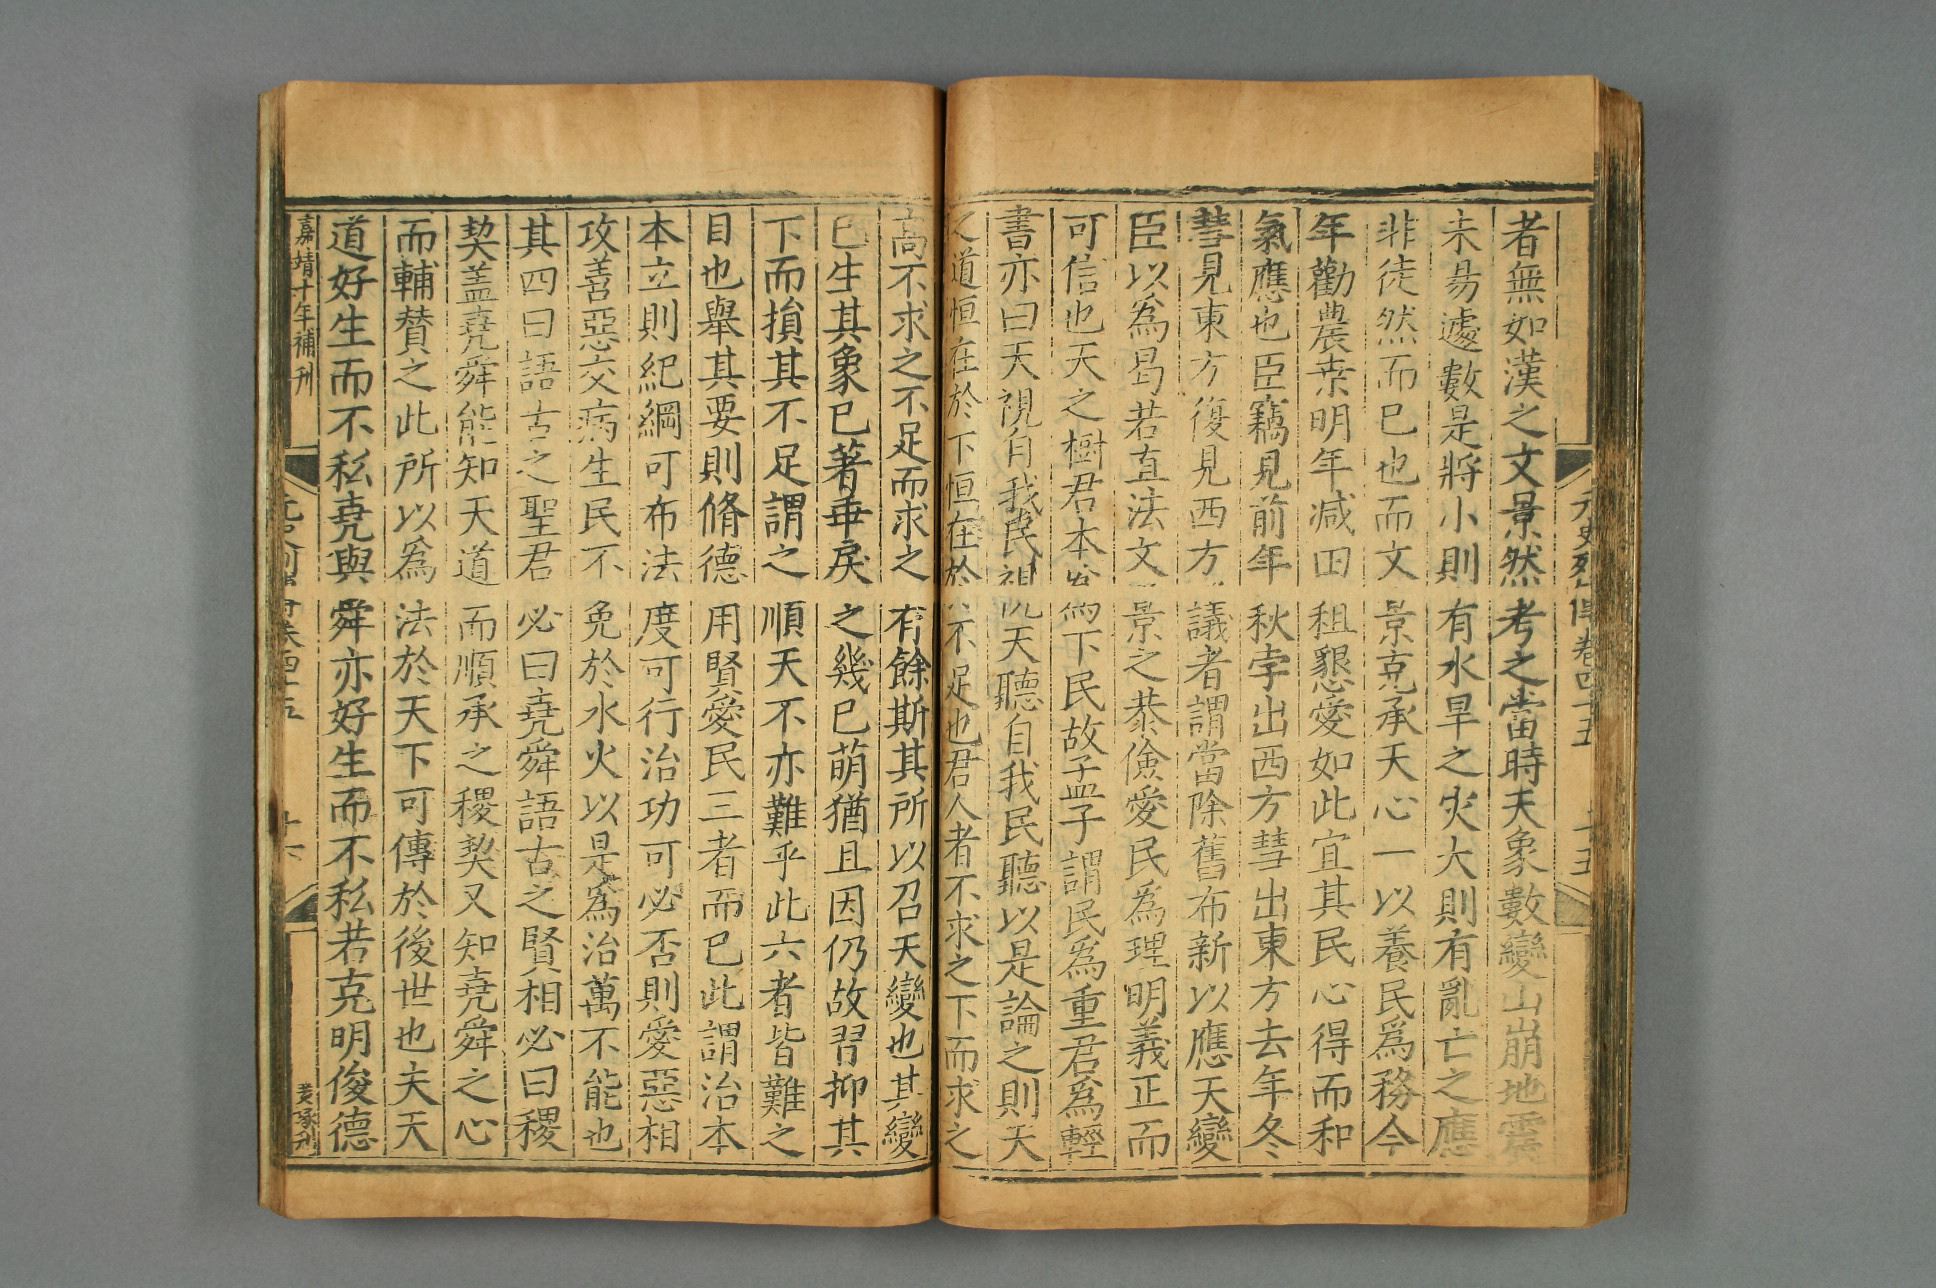 元史列傳卷四十五
十五
者無如漢之文景然考之當時天象數變山崩地震
未易遽數是將小則有水旱之灾大則有亂亡之應
非徒然而已也而文景克承天心一以養民爲務今
年勸農桒明年减田租懇愛如此宜其民心得而和
氣應也臣竊見前年秋孛出西方彗出東方去年冬
彗見東方復見西方議者謂當除舊布新以應天變
臣以爲曷若直法文景之恭儉愛民爲理明義正而
可信也天之樹君本爲下民故孟子謂民爲重君爲輕
書亦曰天視自我民視天聽自我民聽以是論之則天
之道恒在於下恒在於不足也君人者不求之下而求之
高不求之不足而求之有餘斯其所以召天變也其變
已生其象已著乖戾之幾已萌猶且因仍故習抑其
下而損其不足謂之順天不亦難乎此六者皆難之
目也舉其要則脩德用賢愛民三者而已此謂治本
本立則紀綱可布法度可行治功可必否則愛惡相
攻善惡交病生民不免於水火以是爲治萬不能也
其四曰語古之聖君必曰堯舜語古之賢相必曰稷
契盖堯舜能知天道而順承之稷契又知堯舜之心
而輔賛之此所以爲法於天下可傳於後世也夫天
道好生而不私堯與舜亦好生而不私若克明俊德
嘉靖十年補刊